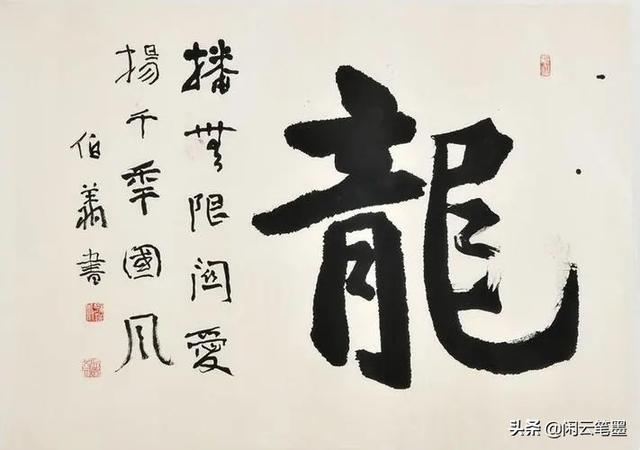 龍
播無限闗愛
揚千年國風
伯 書
头条 @闲云笔墨